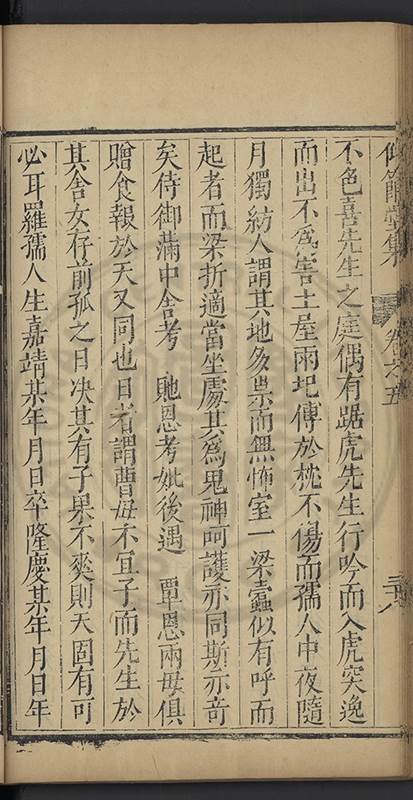 仰節堂集 卷之五
不色喜先生之庭偶有踞虎先生行吟而入虎突逸
而出不爲害土屋雨圮傅於枕不傷而孺人中夜隨
月獨紡人謂其地多祟而無怖室一梁蠹似有呼而
起者而梁折適當坐處其爲鬼神呵護亦同斯亦竒
矣侍御滿中舍考 貤恩考妣後遇 覃恩兩毋俱
贈食報於天又同也日者謂曹毋不宜子而先生於
其舍女存前孤之日决其有子果不爽則天固有可
必耳羅孺人生嘉靖某年月日卒隆慶某年月日年